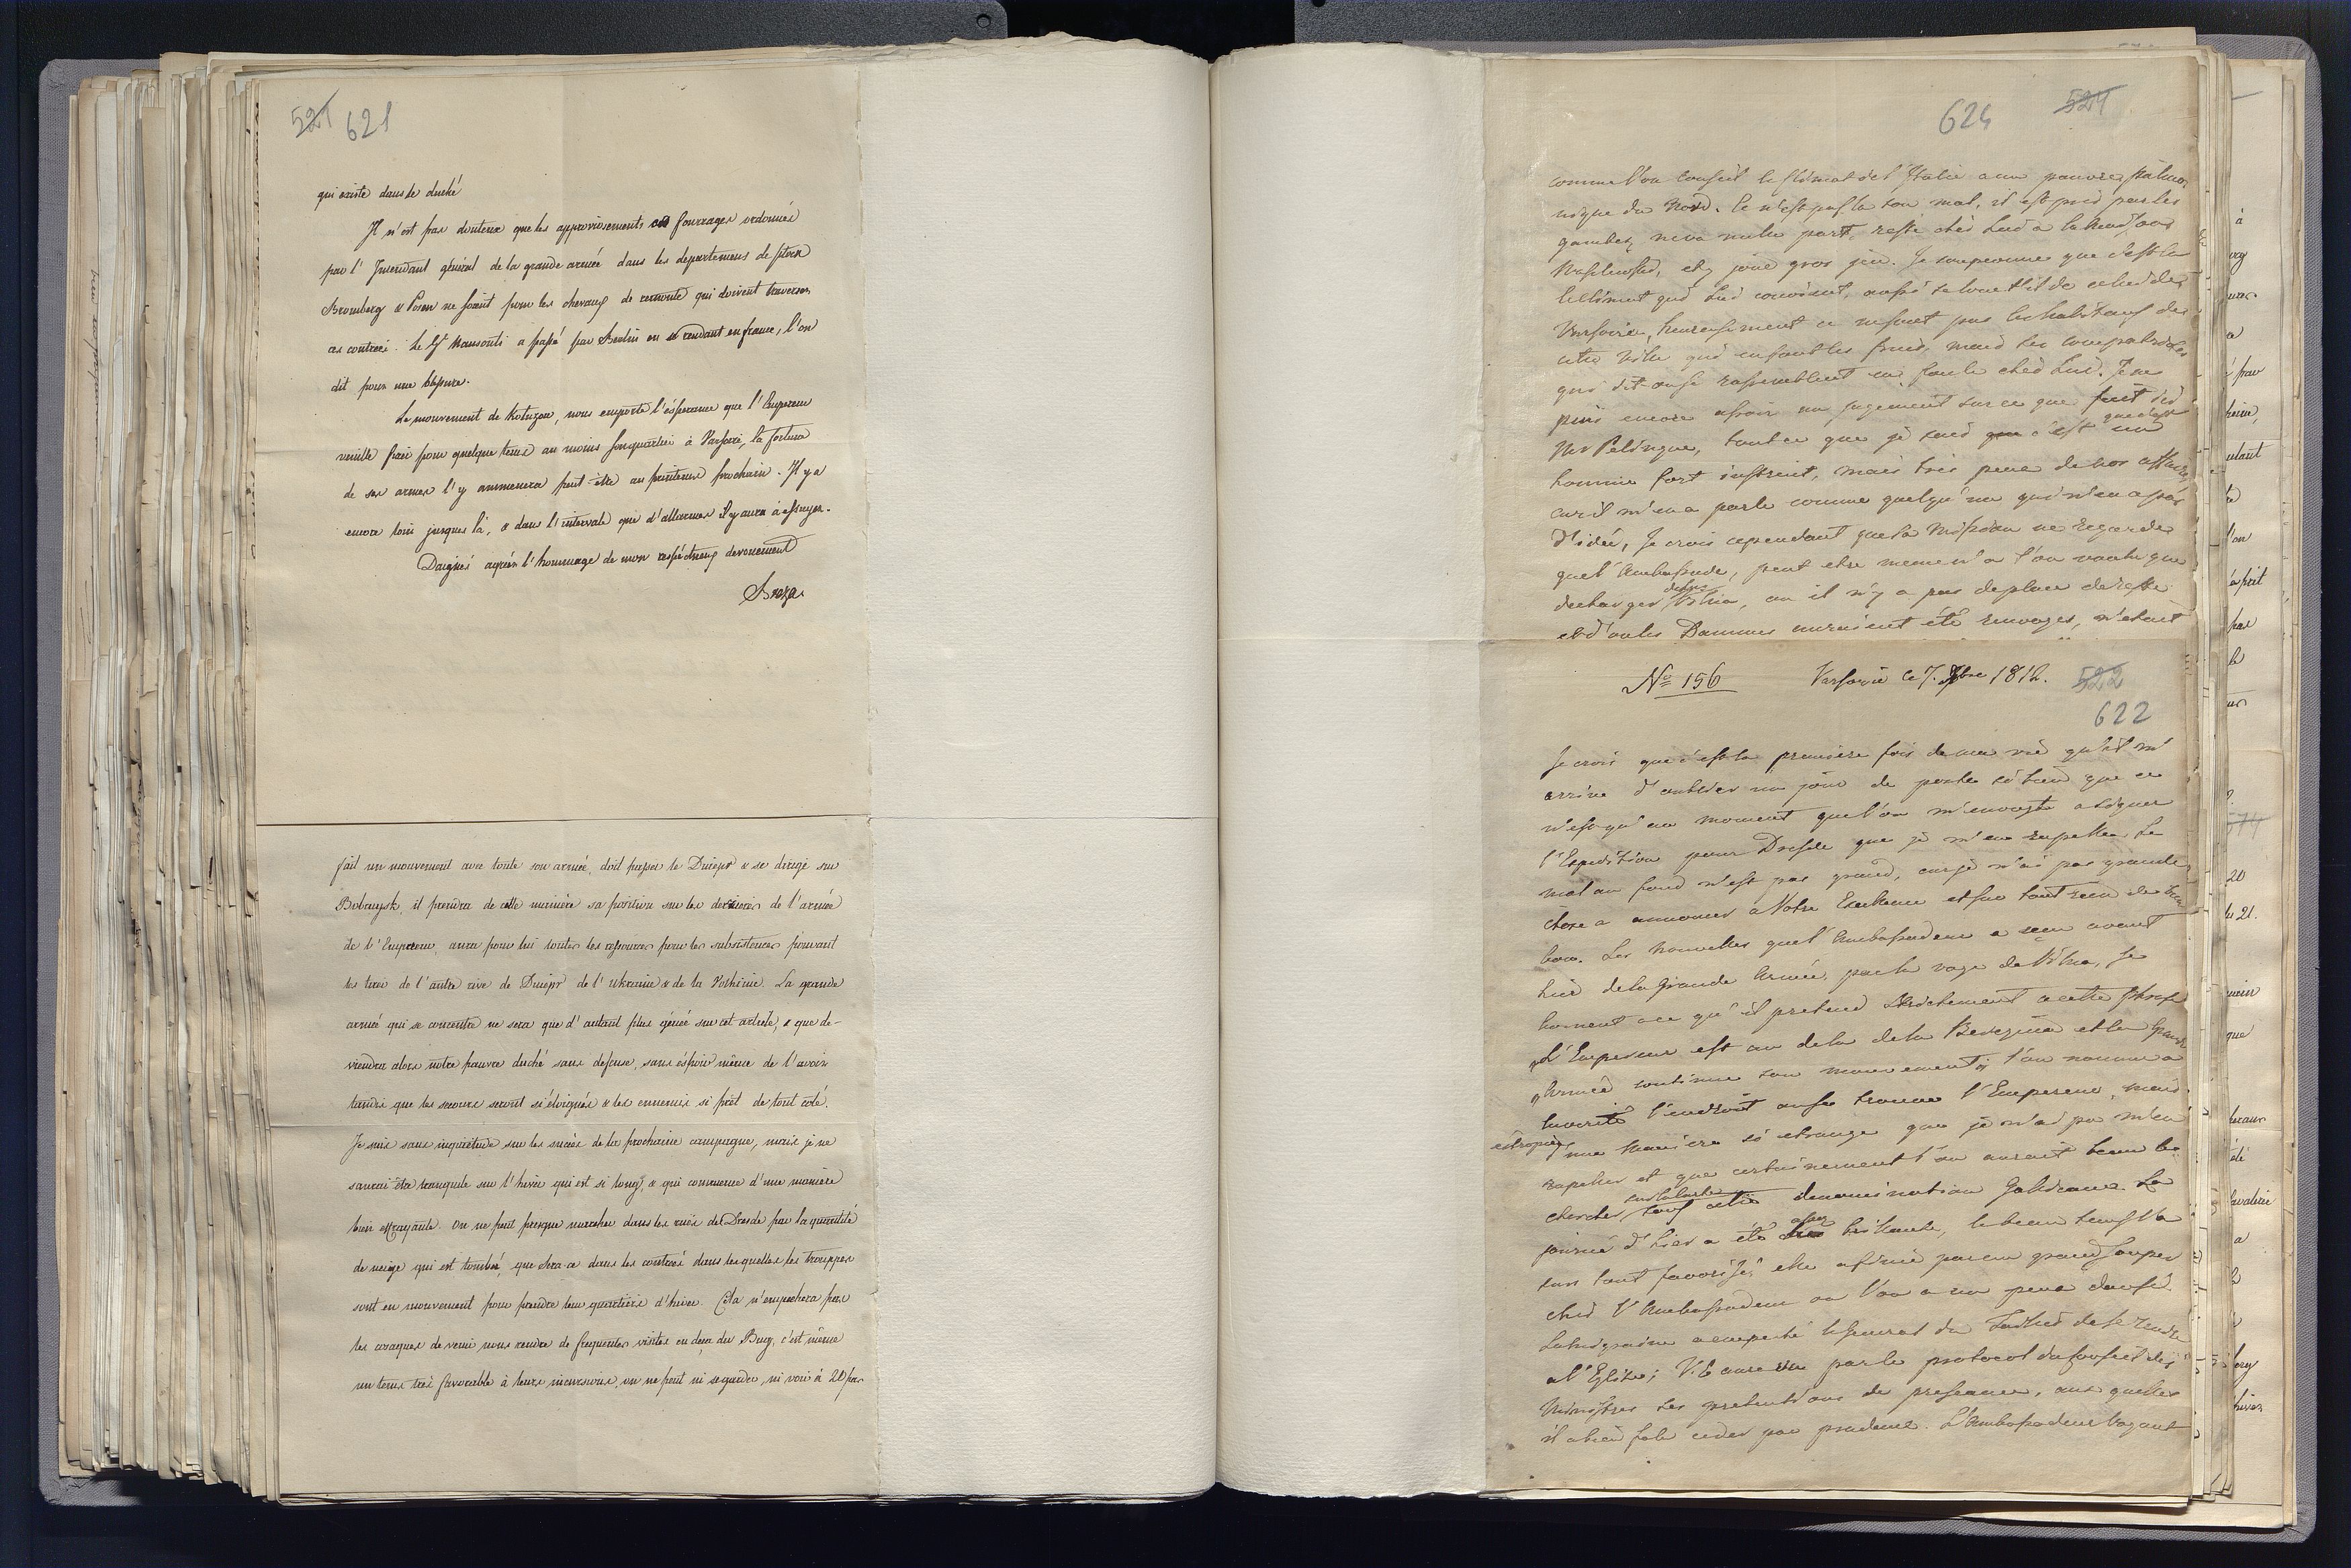 521 621
qui existe dans le duché
Il n'est pas douteux que les approvisionements en fourrages ordonnés
par l'Intendant général de la grande armée dans les departemens de
Bromberg & Posen ne soient pour les chevaux de remonte qui doivent traverser
ces contrées. Le Gl Nansouti a passé par Berlin en se rendant en france, l'on
dit pour une blessure.
Le mouvement de Kotuzow, nous emporte l'ésperance que l'Empereur
veuille fixer pour quelque tems au moins son quartier à Varsovie, la fortune
de ses armes l'y ammenera peut-être au printems prochain. Il y a
encore loin jusques là, & dans l'intervale que d'allarmes il y aura à essuyer.
Daignés agréer l'hommage de mon respéctueux devouement
Breza
fait un mouvement avec toute son armée, doit passer le Dniepr & se dirige sur
Bobruysk, il prendra de cette manière sa position sur les derrières de l'armée
de l'Empereur, aura pour lui toutes les ressources pour les subsistences pouvant
les tirer de l'autre rive de Dniepr de l'Ukraine & de la Volhinie. La grande
armée qui se concentre ne sera que d'autant plus génée sur cet article, & que de-
viendra alors notre pauvre duché sans defense, sans éspoir même de l'avoir
tandis que les secours seront si éloignés & les ennemis si prêt de tout coté.
Je suis sans inquiétude sur les succès de la prochaine campagne, mais je ne
saurai être tranquile sur l'hiver qui est si long, & qui commence d'une manière
bien effrayante. On ne peut presque marcher dans les rues de Dresde par la quantité
de neige qui est tombée, que sera-ce dans les contrées dans lesquelles les trouppes
sont en mouvement pour prendre leur quartiers d'hiver. Cela n'empechera pas
les cosaques de venir nous rendre de frequentes visites en deça du Bug, c'est même
un tems très favorable à leurs incursions, on ne peut ni se garder, ni voir à 20 pas
624 524
comme l'on conseil le climat de l'Italie a un pauvre
du Nord. Ce n'est pas la son mal, il est pris par les
gambes, ne va nulle part, reste chés lui a la
et joue gros jeu. Je soupconne que c'est le
climent qui lui convient, aussi se loue t'il de celui de
Varsovie, heureusement ce ne sont pas les habitans de
cette ville qui en font les frais, mais ses compatriotes
qui dit-on se rassemblent en foule chés lui. Je ne
puis encore assoir un jugement sur ce que fait ici
Mr Pelingue, tout ce que je sais que c'est un
homme fort instruit, mais très peu de nos affaires
car il m'en a parlé comme quelqu'un qui n'en a pas
d'idée, Je crois cependant que sa Mission ne regarde
que l'Ambassade, peut etre meme n'a t'on voulu que
decharger Vilna, ou il n'y a pas de place de reste
et d'ou les Dammes auraient été renvoyes, n'etait
No 156 Varsovie ce 7. Xbre 1812. 522
622
Je crois que c'est la premiere fois de ma vie qu'il m'
arrive d'oublier un jour de poste si bien que ce
n'est qu'au moment que l'on m'envoyta a signer
l'Expedition pour Dresde que je m'en rapelle. Le
mal au fond n'est pas grand, car je n'ai pas grande
chose a annoncer a Votre Excellence et sur tout rien de bien
bon. Les nouvelles que l'Ambassadeur a reçu avant
hier de la Grande Armée, par la voye de Vilna, se
bornent a ce qu'il pretend strictement a cette phrase
„L'Empereur est au dela de la Berezina et la Grande
„Armée continue son mouvement„ l'on nomme a
la verité l'endroit ou se trouve l'Empereur, mais
estropiée
une maniere si etrange que je n'ai pu m'en
rapeller et que certainement l'on aurait beau le
sur la carte
chercher sous cette denomination Galicienne. La
assez
journée d'hier a été brillante, le beau tems l'a
sur tout favorisé, elle a finie par un grand souper
chés l'Ambassadeur ou l'on a un peu dansé.
La migraine a empeché le general du de se rendre
a l'Eglise; V. E aura vu par le protocol du Conseil des
Ministres ses pretentions de préseance, aux quelles
il a bien falu ceder par prudence. L'Ambassadeur voyant